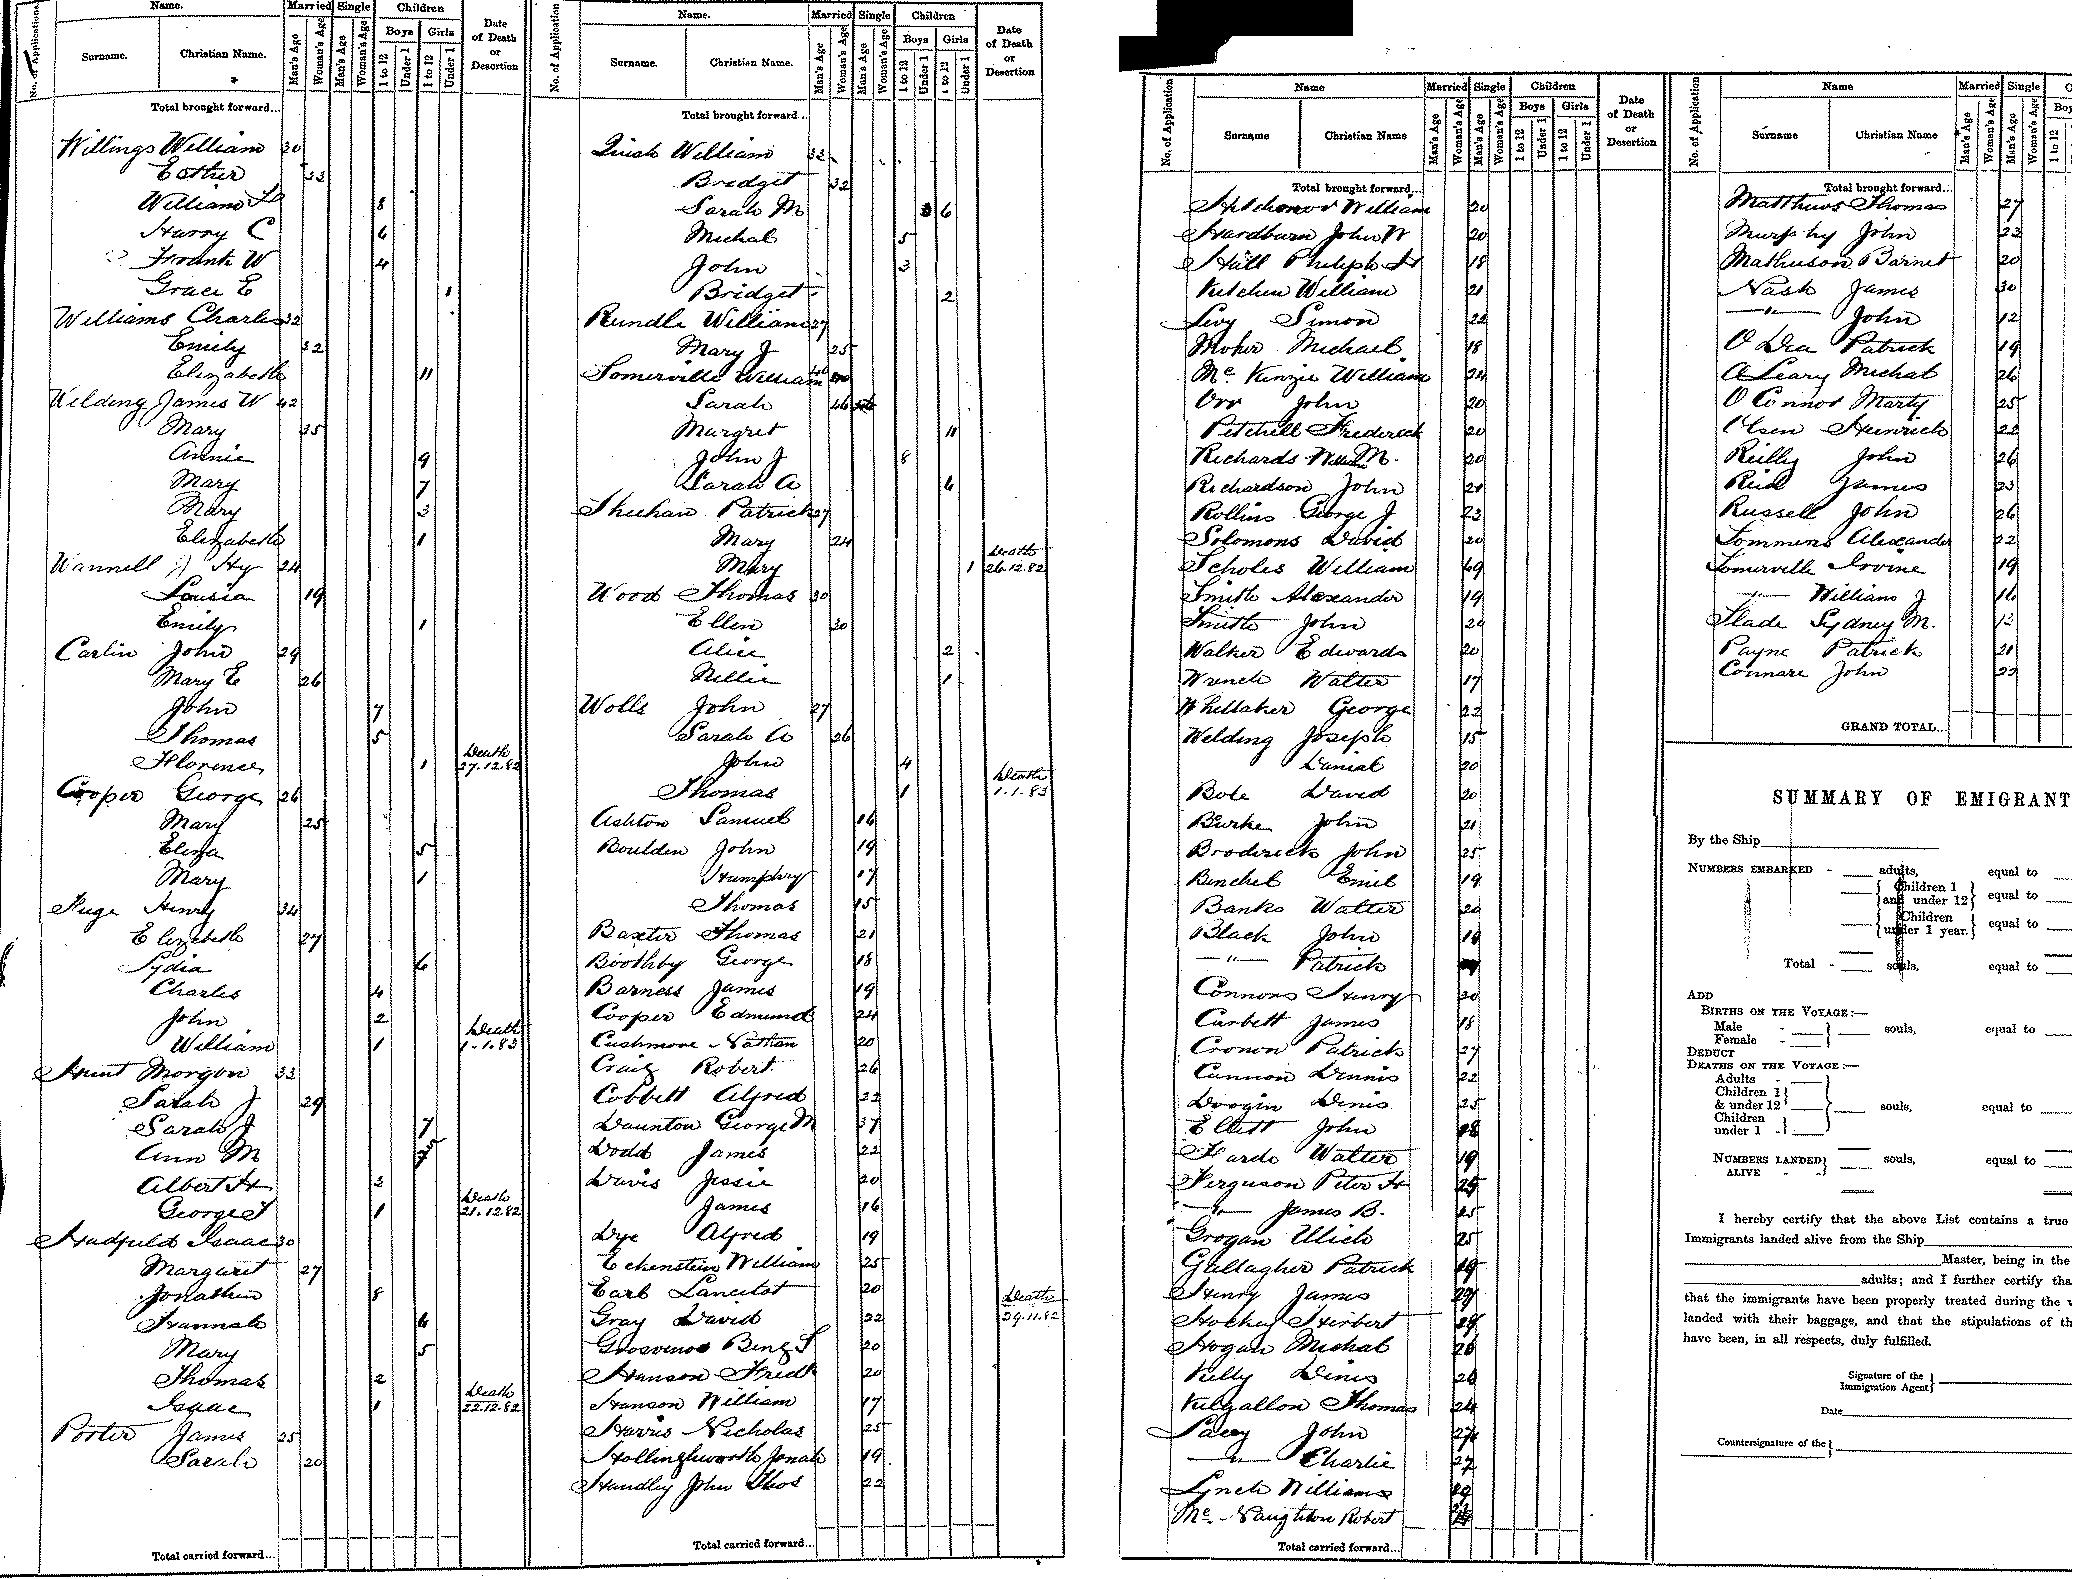 No. of Application
Name.
Married Single Children
Date of Death or Desertion
Surname. Christian Name.
Man's Age Woman's Age Man's Age Woman's Age
Boys Girls
1 to 12 Under 1 1 to 12 Under 1
Total brought forward...
Willings William 30
Esther 33
William 8
Harry C 6
Frank W 4
Grace E 1
Williams Charles 32
Emily 32
Elizabeth 11
Welding James W 42
Mary 35
Annie 9
Mary 7
Mary 3
Elizabeth 1
Wannell Hy 24
Lousia 19
Emily 1
Carlin John 29
Mary E 26
John 7
Thomas 5
Florence 1 Death 27.12.82
Cooper George 26
Mary 25
Eliza 5
Mary 1
Huge Henry 34
Elizabeth 27
Lydia 6
Charles 4
John 2
William 1 Death 1.1.83
Hunt Morgan 33
Sarah J 29
Sarah J 7
Ann M 5
Albert H 3
George T 1 Death 21.12.82
Hadfield Isaac 30
Margaret 27
Jonathan 8
Hannah 6
Mary 5
Thomas 2
Isaac 1 Death 22.12.82
Porter James 25
Sarah 20
Total carried forward...
No. of Application
Name.
Married Single Children
Date of Death or Desertion
Surname. Christian Name.
Man's Age Woman's Age Man's Age Woman's Age
Boys Girls
1 to 12 Under 1 1 to 12 Under 1
Total brought forward...
Quish William 32
Bridget 32
Sarah M 6
Michal 5
John 3
Bridget 2
Rundle William 27
Mary J 25
Somerville William 46
Sarah 46
Margret 11
John J 8
Sarah A 6
Sheehan Patrick 27
Mary 24
Mary 1 Death 26.12.82
Wood Thomas 30
Ellen 30
Alice 2
Nellie 1
Wolls John 27
Sarah A 26
John 4
Thomas 1 Death 1.1.83
Ashton Samuel 16
Boulden John 19
Humphry 17
Thomas 15
Baxter Thomas 21
Boothby George 18
Barness James 19
Cooper Edmund 24
Cushmore Nathan 20
Craig Robert 26
Cobbett Alfred 22
Daunton George M 37
Dodd James 22
Davis Jessie 20
James 16
Dye Alfred 19
Echenstein William 25
Earl Lancelot 20
Gray David 22 Death 29.11.82
Grosvenor Benj S 20
Hanson Fredk 20
Hanson William 17
Harris Nicholas 25
Hollinghworth Jonah 19
Handley John Thos 22
Total carried forward...
No. of Application
Name
Married Single Children
Date of Death or Desertion
Surname Christian Name
Man's Age Woman's Age Man's Age Woman's Age
Boys Girls
1 to 12 Under 1 1 to 12 Under 1
Total brought forward...
Hitchenor William 20
Hardburn John W 20
Hall Philip H 18
Kitchen William 21
Levy Simon 22
Moher Michael 18
Mc Kenzie William 24
Orr John 20
Petchell Frederick 20
Richards William M. 20
Richardson John 21
Rollins George J 23
Solomons David 20
Scholes William 49
Smith Alexander 19
Smith John 24
Walker Edwards 20
Wrench Walter 17
Whellaker George 22
Welding Joseph 15
Danial 20
Bole David 20
Burke John 21
Broderick John 25
Binchel Emil 19
Banks Walter 20
Black John 19
— " — Patrick
Connors Henry 20
Corbett James 18
Cronon Patrick 27
Cannon Dennis 22
Doogin Denis 25
Elliott John 18
Forde Walter 19
Ferguson Peter H 25
— " — James B. 25
Grogan Ulick 25
Gallagher Patrick 19
Henry James 27
Hockey Herbert 29
Hogan Michal 26
Kelly Denis 26
Kilgallon Thomas 24
Lacey John 27
— " — Charlie 27
Lynch William 19
Mc Naughton Robert
Total carried forward...
No. of Application
Name
Married Single
Surname Christian Name
Man's Age Woman's Age Man's Age Woman's Age
1 to 12
Total brought forward...
Matthews Thomas 27
Murphy John 22
Mathieson Barnet 20
Nash James 30
— " — John 12
O Dea Patrick 19
O Leary Michal 26
O Connor Marty 25
Olsen Heinrich 22
Reilly John 26
Reid James 23
Russell John 26
Sommens Alexander 22
Somerville Irvine 19
— " — William J 16
Slade Sydney M. 13
Payne Patrick 21
Connare John 22
GRAND TOTAL...
SUMMARY OF EMIGRANT
By the Ship
NUMBERS EMBARKED - adults, equal to
Children 1 and under 12 equal to
Children under 1 year. equal to
Total - souls, equal to
ADD
BIRTHS ON THE VOYAGE:—
Male
Female
souls, equal to
DEDUCT
DEATHS ON THE VOYAGE:—
Adults
Children 1 & under 12
Children under 1
souls, equal to
NUMBERS LANDED ALIVE - souls, equal to
I hereby certify that the above List contains a true
Immigrants landed alive from the Ship
Master, being in the
adults; and I further certify tha
that the immigrants have been properly treated during the v
landed with their baggage, and that the stipulations of th
have been, in all respects, duly fulfilled.
Signature of the Immigration Agent
Date
Countersignature of the